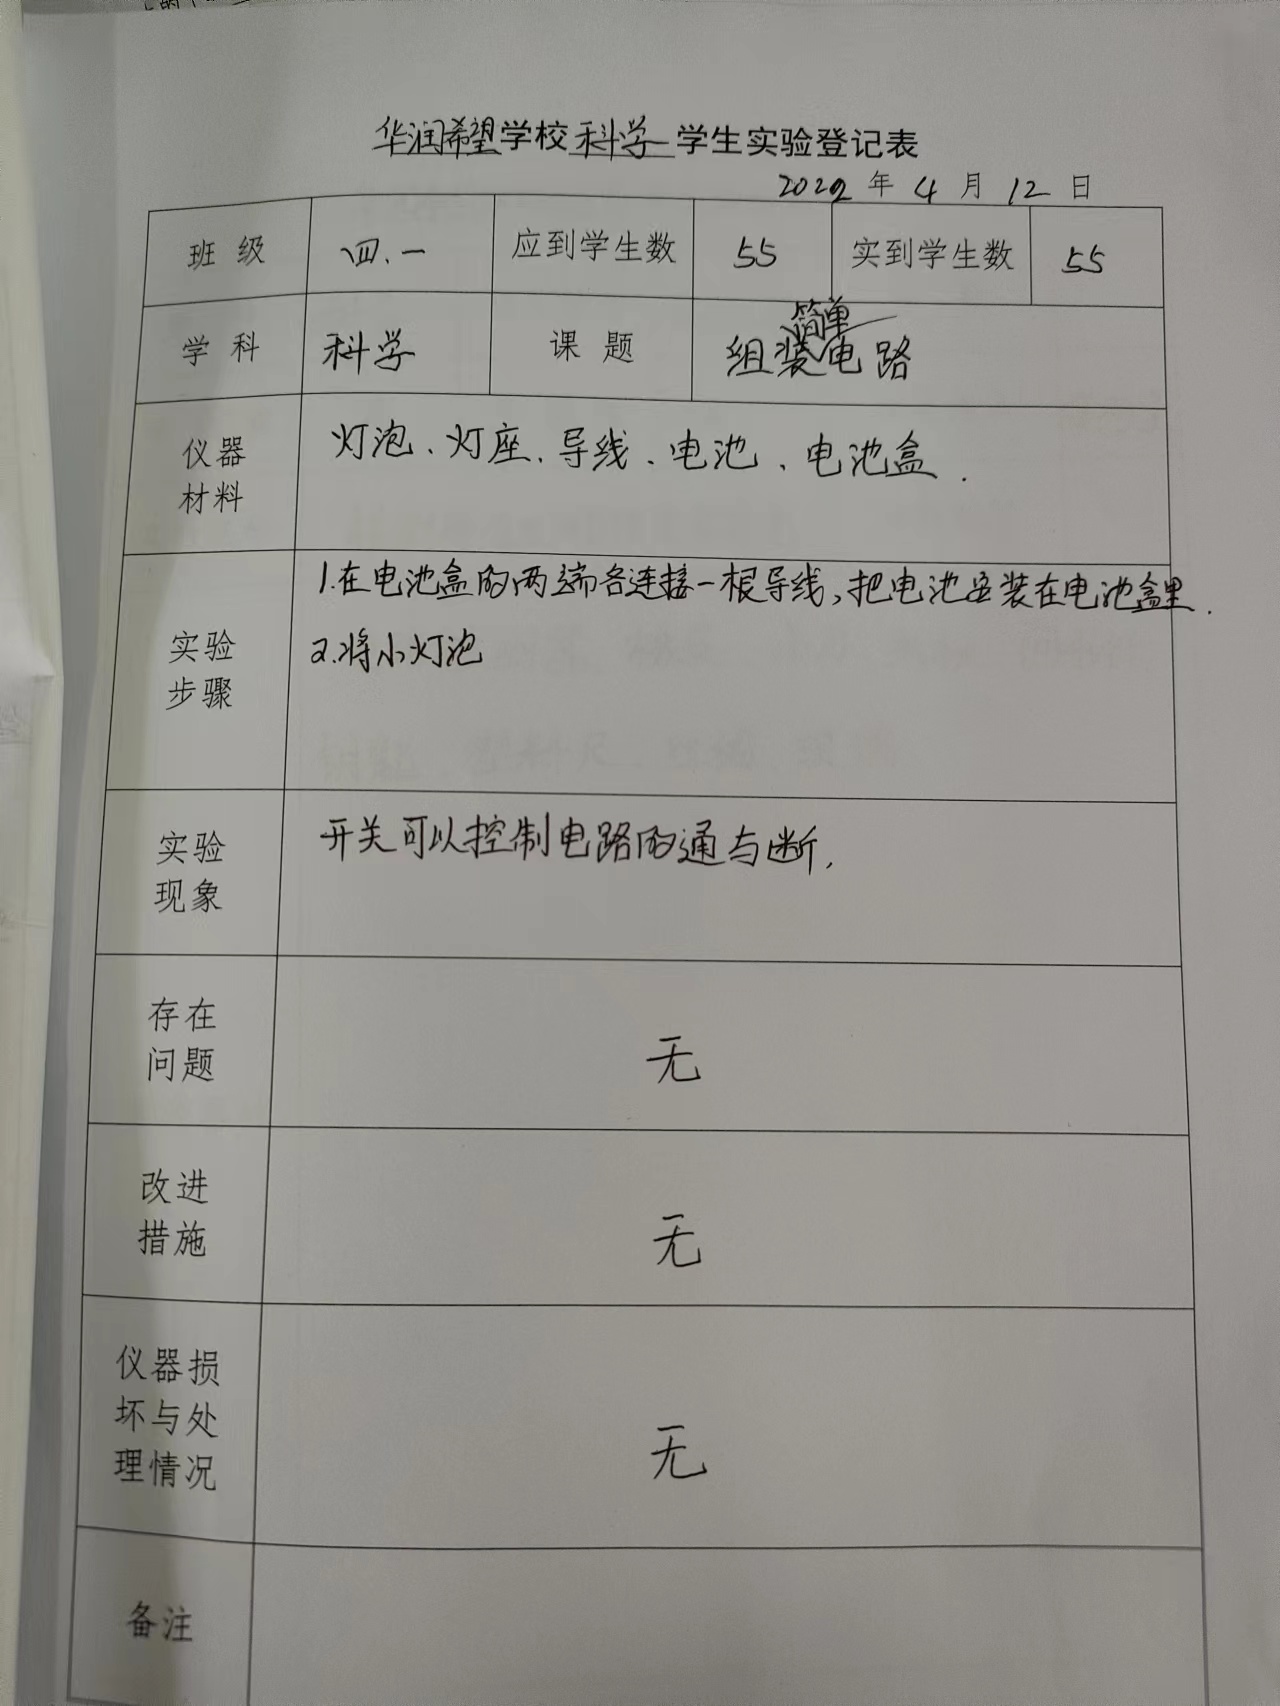 华润希望学校科学学生实验登记表
2022年4月12日
班级 四.一 应到学生数 55 实到学生数 55
简单
学科 科学 课题 组装电路
仪器
材料
灯泡、灯座、导线、电池、电池盒.
实验
步骤
1.在电池盒的两端各连接一根导线,把电池安装在电池盒里.
2.将小灯泡
实验
现象
开关可以控制电路的通与断.
存在
问题
无
改进
措施
无
仪器损
坏与处
理情况
无
备注